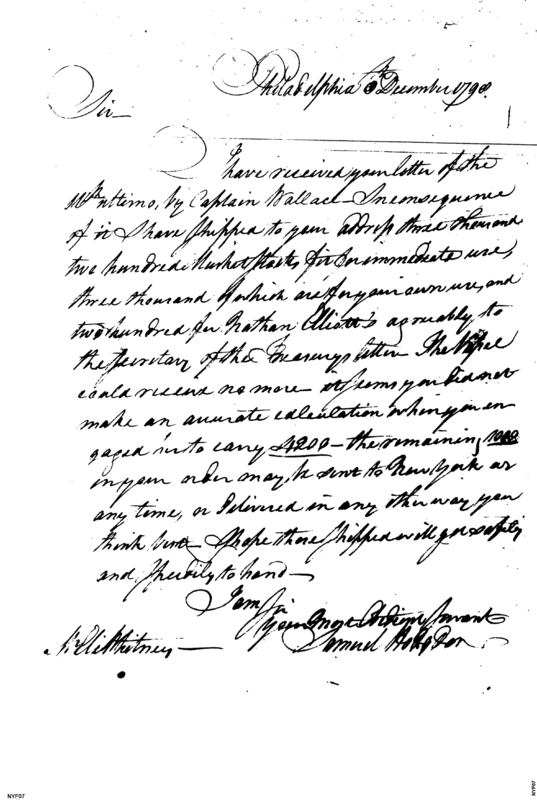 Philadelphia 8th December 1798.
Sir—
I have received your letter of the
ultimo, by Captain Wallace— In consequence
of it I have shipped to your address three thousand
two hundred Musket Stocks fit for immediate use,
three thousand of which are for your own use, and
two hundred for Nathan Elliott's agreeably to
the Secretary of the Treasury's letter— The Vessel
could receive no more— it seems you did not
make an accurate calculation when you en
gaged her to carry 4200— the remaining 1000
in your order may be sent to New York at
any time, or delivered in any other way you
think best— I hope those shipped will get safely
and speedily to hand—
I am Sir
Your Most Obedient Servant
Samuel Hodgdon
Mr. Eli Whitney—
NYF07
NYF07